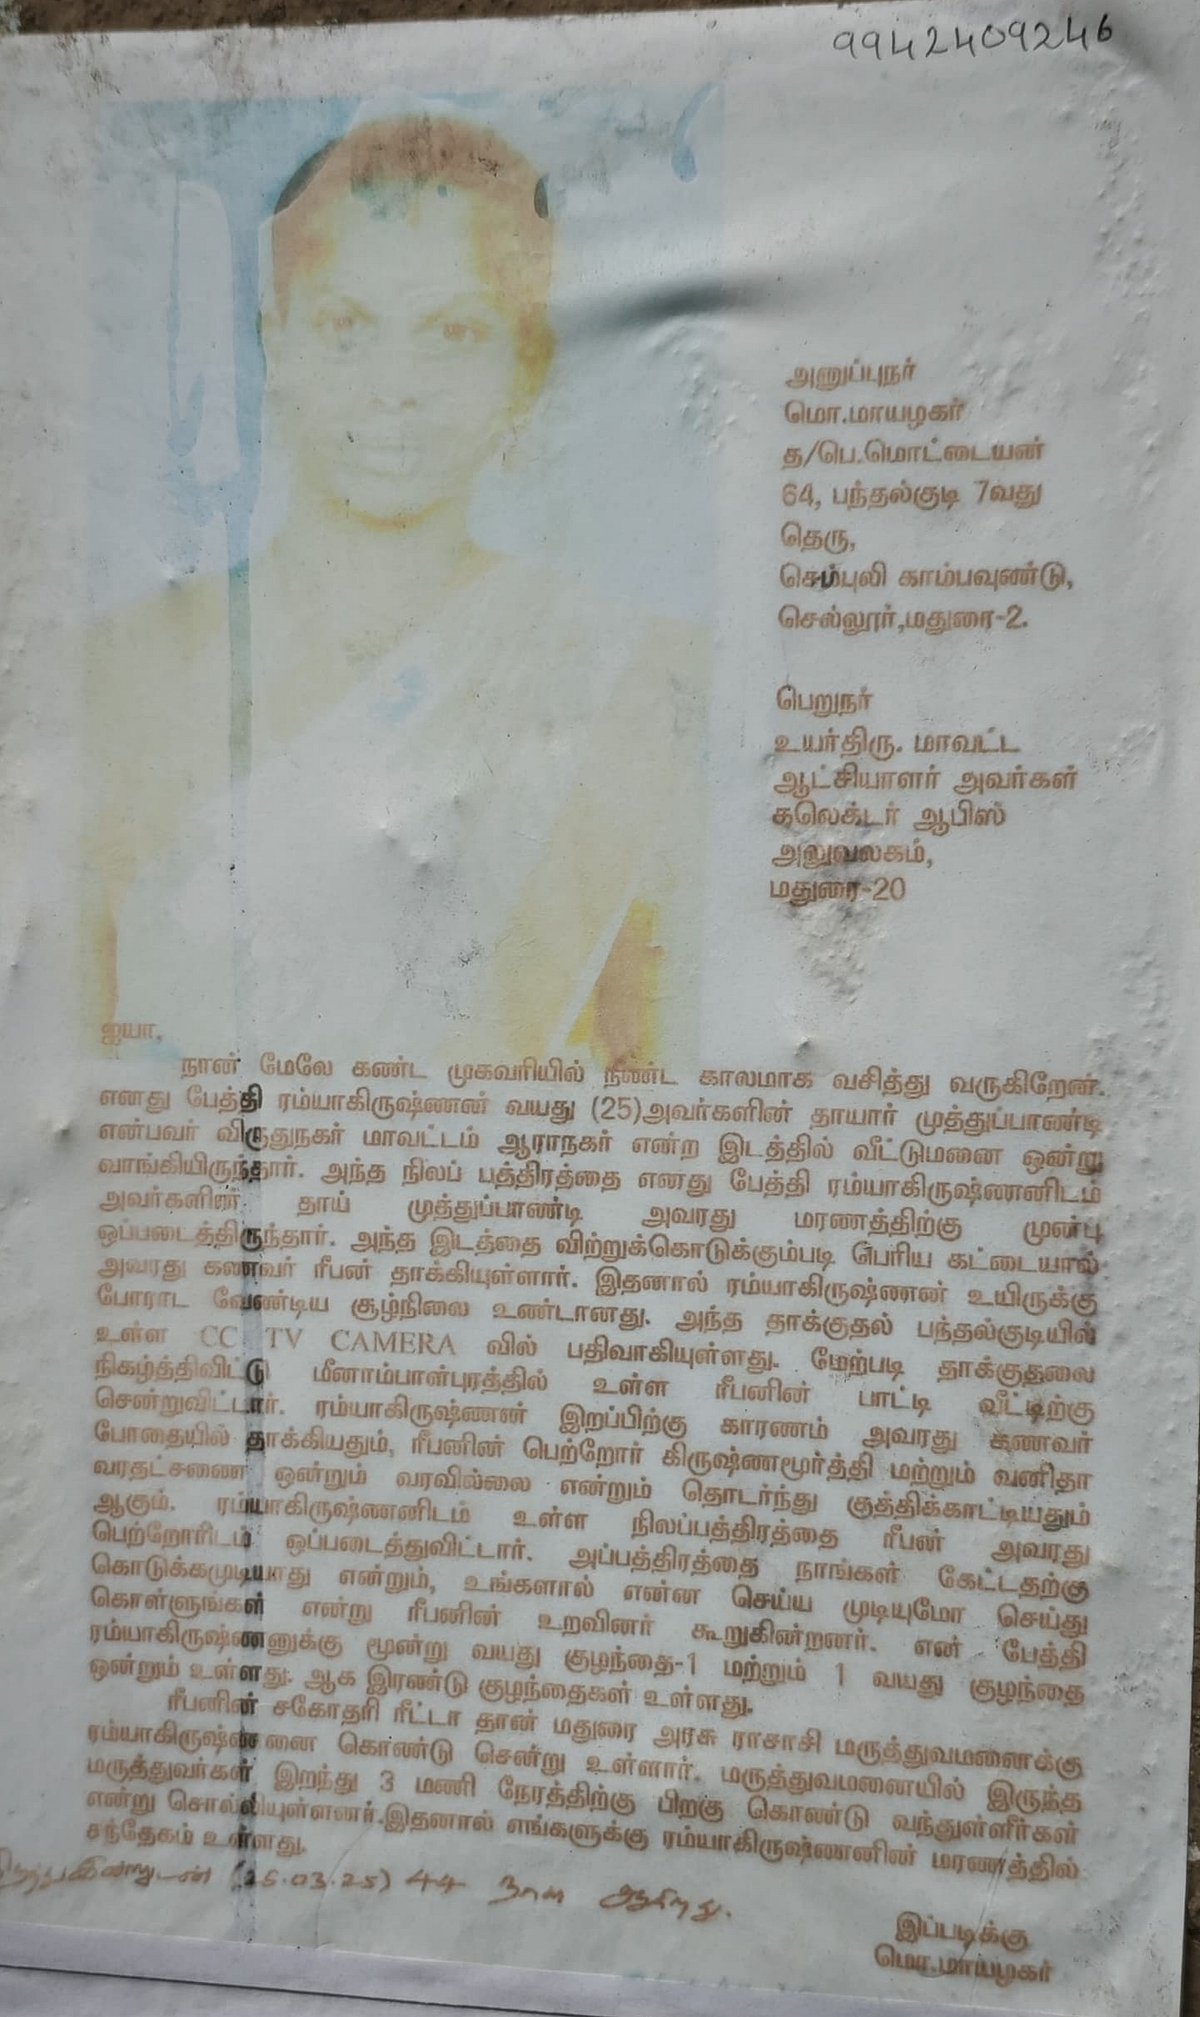 9942409246
அனுப்புநர்
மொ.மாயழகர்
த/பெ.மொட்டையன்
64, பந்தல்குடி 7வது
தெரு,
செம்புலி காம்பவுண்டு,
செல்லூர்,மதுரை-2.
பெறுநர்
உயர்திரு. மாவட்ட
ஆட்சியாளர் அவர்கள்
கலெக்டர் ஆபிஸ்
அலுவலகம்,
மதுரை-20
ஐயா,
நான் மேலே கண்ட முகவரியில் நீண்ட காலமாக வசித்து வருகிறேன்.
எனது பேத்தி ரம்யாகிருஷ்ணன் வயது (25)அவர்களின் தாயார் முத்துப்பாண்டி
என்பவர் விருதுநகர் மாவட்டம் ஆராநகர் என்ற இடத்தில் வீட்டுமனை ஒன்று
வாங்கியிருந்தார். அந்த நிலப் பத்திரத்தை எனது பேத்தி ரம்யாகிருஷ்ணனிடம்
அவர்களின் தாய் முத்துப்பாண்டி அவரது மரணத்திற்கு முன்பு
ஒப்படைத்திருந்தார். அந்த இடத்தை விற்றுக்கொடுக்கும்படி பெரிய கட்டையால்
அவரது கணவர் ரீபன் தாக்கியுள்ளார். இதனால் ரம்யாகிருஷ்ணன் உயிருக்கு
போராட வேண்டிய சூழ்நிலை உண்டானது. அந்த தாக்குதல் பந்தல்குடியில்
உள்ள CC TV CAMERA வில் பதிவாகியுள்ளது. மேற்படி தாக்குதலை
நிகழ்த்திவிட்டு மீனாம்பாள்புரத்தில் உள்ள ரீபனின் பாட்டி வீட்டிற்கு
சென்றுவிட்டார். ரம்யாகிருஷ்ணன் இறப்பிற்கு காரணம் அவரது கணவர்
போதையில் தாக்கியதும், ரீபனின் பெற்றோர் கிருஷ்ணமூர்த்தி மற்றும் வனிதா
வரதட்சணை ஒன்றும் வரவில்லை என்றும் தொடர்ந்து குத்திக்காட்டியதும்
ஆகும். ரம்யாகிருஷ்ணனிடம் உள்ள நிலப்பத்திரத்தை ரீபன் அவரது
பெற்றோரிடம் ஒப்படைத்துவிட்டார். அப்பத்திரத்தை நாங்கள் கேட்டதற்கு
கொடுக்கமுடியாது என்றும், உங்களால் என்ன செய்ய முடியுமோ செய்து
கொள்ளுங்கள் என்று ரீபனின் உறவினர் கூறுகின்றனர். என் பேத்தி
ரம்யாகிருஷ்ணனுக்கு மூன்று வயது குழந்தை-1 மற்றும் 1 வயது குழந்தை
ஒன்றும் உள்ளது. ஆக இரண்டு குழந்தைகள் உள்ளது.
ரீபனின் சகோதரி ரீட்டா தான் மதுரை அரசு ராசாசி மருத்துவமனைக்கு
ரம்யாகிருஷ்ணனை கொண்டு சென்று உள்ளார். மருத்துவமனையில் இருந்த
மருத்துவர்கள் இறந்து 3 மணி நேரத்திற்கு பிறகு கொண்டு வந்துள்ளீர்கள்
என்று சொல்லியுள்ளனர்.இதனால் எங்களுக்கு ரம்யாகிருஷ்ணனின் மரணத்தில்
சந்தேகம் உள்ளது.
(26.03.25) 44 நாள் ஆகிறது.
இப்படிக்கு
மொ.மாயழகர்